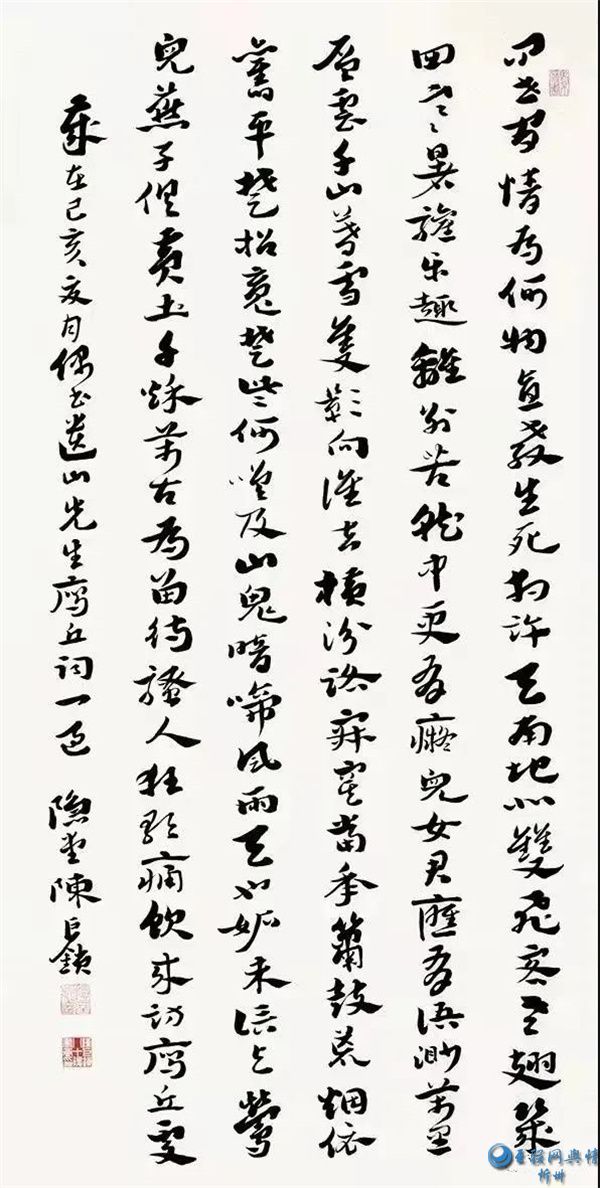 问世間情為何物直教生死相許天南地北雙飛客老翅幾
回寒暑歡乐趣離别苦就中更有癡兒女君應有語渺萬里
層雲千山暮雪隻影向誰去橫汾路寂寞當年簫鼓荒烟依
舊平楚招魂楚些何嗟及山鬼暗啼風雨天也妬未信与鶯
兒燕子俱黃土千秋萬古為留待騷人狂歌痛飲來訪雁丘處
歲在己亥夏月偶书遺山先生雁丘詞一過 隱堂陳巨鎖
网舆情
忻州